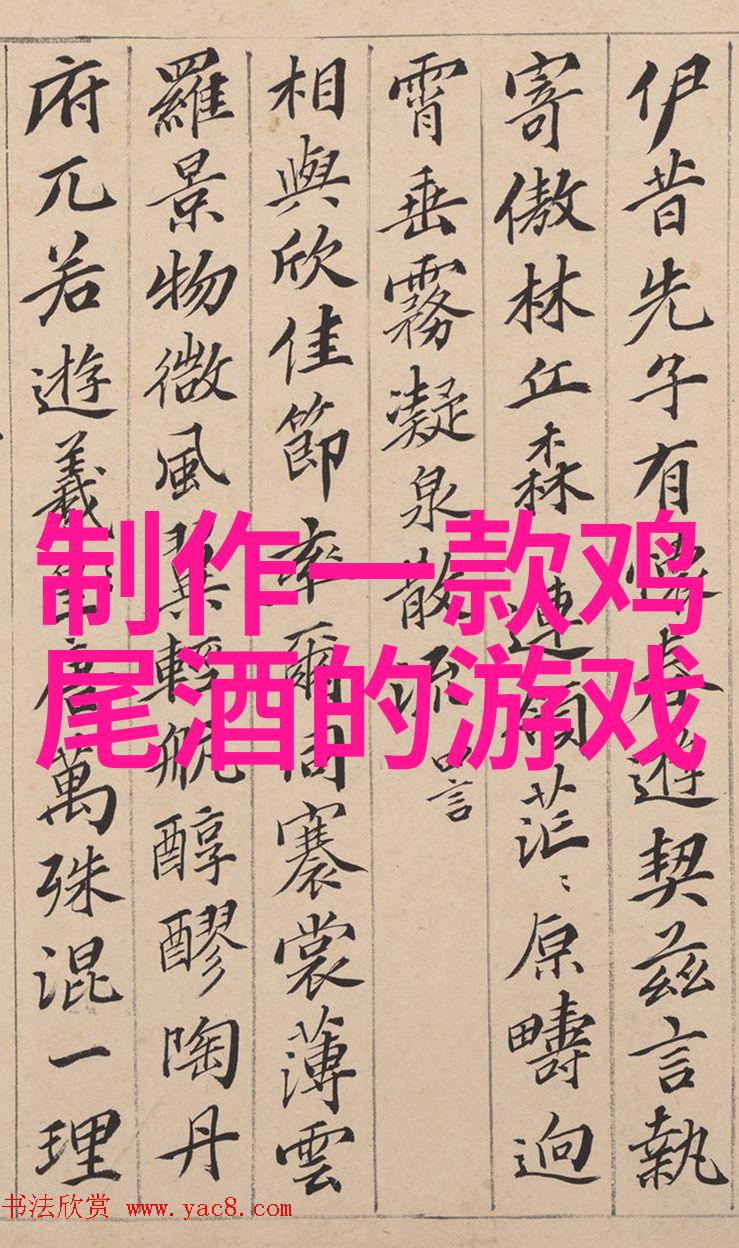 伊昔先子有懷春遊契茲言執
寄傲林丘森連領茫〻原疇迥
霄垂霧凝泉散流
相與欣佳節率爾同褰裳薄雲
羅景物微風翼輕航醇醪陶丹
府兀若遊羲唐萬殊混一理
制作一款鸡
尾酒的游戏
书法欣赏 www.yac8.com